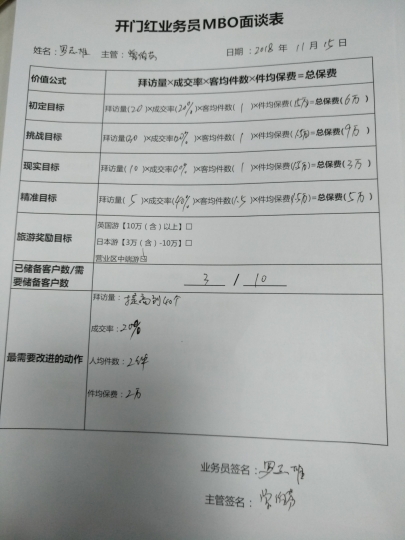 开门红业务员MBO面谈表
姓名: 罗 雄 主管: 日期: 2018 年 11 月 15 日
价值公式 拜访量×成交率×客均件数×件均保费=总保费
初定目标 拜访量(20)×成交率(20%)×客均件数( 1 )×件均保费(1.5万)=总保费(6万)
挑战目标 拜访量(30)×成交率(20%)×客均件数( 1 )×件均保费(1.5万)=总保费(9万)
现实目标 拜访量(10)×成交率(20%)×客均件数( 1 )×件均保费(1.5万)=总保费(3万)
精准目标 拜访量( 5 )×成交率(40%)×客均件数(1.5)×件均保费(1.5万)=总保费(5万)
旅游奖励目标
英国游【10万(含)以上】□
日本游【3万(含)-10万】□
营业区中端游□
已储备客户数/需要储备客户数 3 / 10
最需要改进的动作
拜访量: 提高到40个
成交率: 20%
人均件数: 2件
件均保费: 2万
业务员签名: 罗 雄
主管签名: